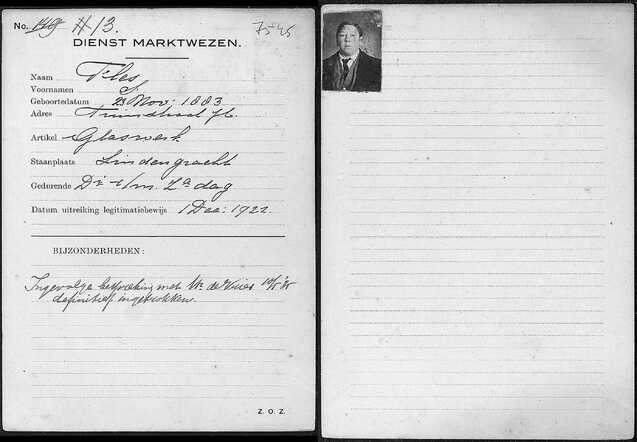 No. 149 H 13. 7545
DIENST MARKTWEZEN.
Naam Fles
Voornamen S.
Geboortedatum 23 Nov: 1883
Adres
Artikel Glaswerk
Staanplaats Lindengracht
Gedurende Di t/m. Za dag
Datum uitreiking legitimatiebewijs 1 Dec: 1922.
BIJZONDERHEDEN:
Ingevolge bespreking met de Vries
definitief ingetrokken.
Z. O. Z.